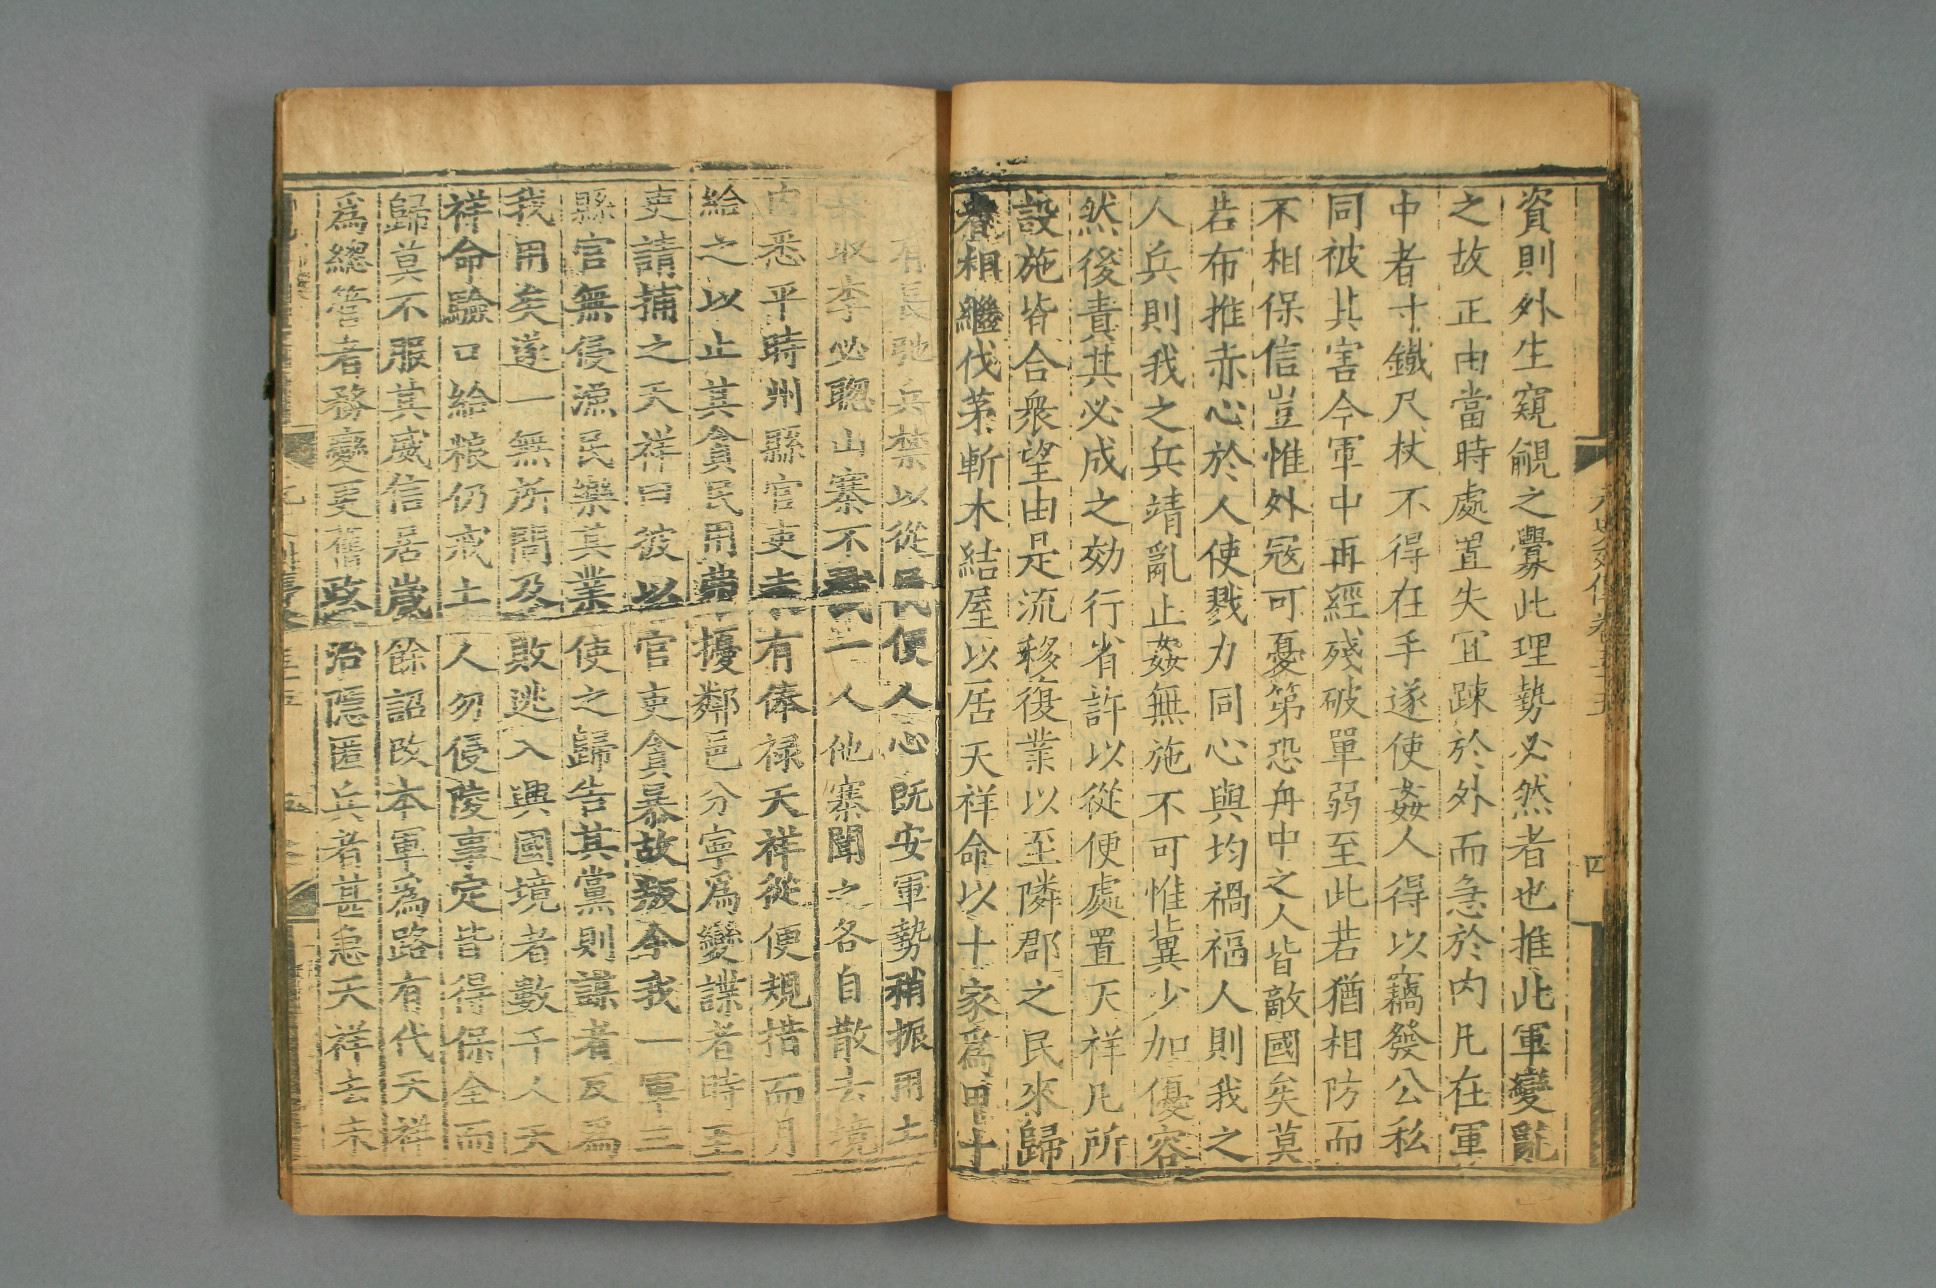 資則外生窺覦之釁此理勢必然者也推此軍變亂
之故正由當時處置失宜踈於外而急於内凡在軍
中者寸鐵尺杖不得在手遂使姦人得以竊發公私
同被其害今軍中再經殘破單弱至此若猶相防而
不相保信豈惟外冦可憂第恐舟中之人皆敵國矣莫
若布推赤心於人使戮力同心與均禍福人則我之
人兵則我之兵靖亂止姦無施不可惟冀少加優容
然後責其必成之効行省許以從便處置天祥凡所
設施皆合衆望由是流移復業以至隣郡之民來歸
者相繼伐茅斬木結屋以居天祥命以十家爲甲十
元史列傳卷五十五
四
有長弛兵禁以從民便人心既安軍勢稍振用土
收李必聰山寨不戰一人他寨聞之各自散去境
内悉平時州縣官吏未有俸祿天祥從便規措而月
給之以止其貪民用弗擾鄰邑分寧爲變諜者時至
吏請捕之天祥曰彼以官吏貪暴故叛今我一軍三
縣官無侵漁民樂其業使之歸告其黨則諜者反爲
我用矣遂一無所問及敗逃入興國境者數千人天
祥命驗口給粮仍戒土人勿侵陵事定皆得保全而
歸莫不服其威信居歲餘詔改本軍爲路有代天祥
爲總管者務變更舊政治隱匿兵者甚急天祥去未